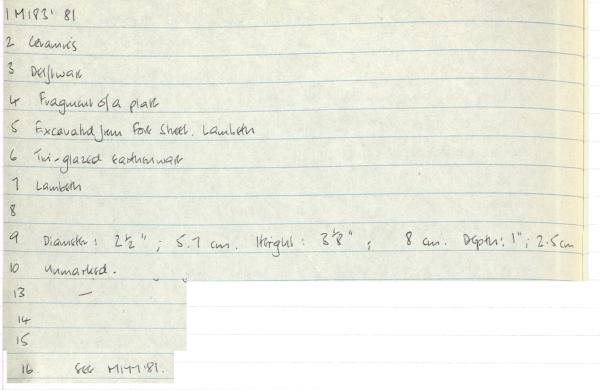 1 M183' 81
2 Ceramics
3 Delftware
4 Fragment of a plate
5 Excavated from Fore Street. Lambeth
6 Tin-glazed earthenware
7 Lambeth
8
9 Diameter: 2½"; 5.7 cm. Height: 3⅛"; 8 cm. Depth: 1"; 2.5cm
10 Unmarked.
13 —
14
15
16. SEE '81.